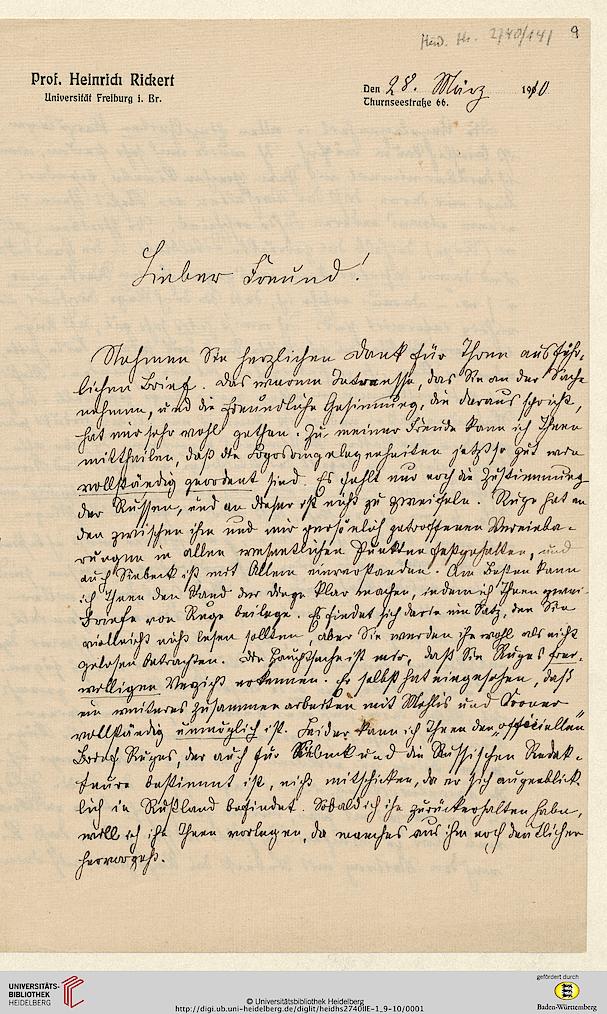 Heid. Hs. 2740/141
9
Prof. Heinrich Rickert
Universität Freiburg i. Br.
Den 28. März 1910
Thurnseestraße 66.
Lieber Freund!
Nehmen Sie herzlichen Dank für Ihren ausführ-
lichen Brief. Das warme Interesse, das Sie an der Sache
nehmen, und die freundliche Gesinnung, die daraus spricht,
hat mir sehr wohl gethan. Zu meiner Freude kann ich Ihnen
mittheilen, daß die Logosangelegenheiten jetzt so gut wie
vollständig geordnet sind. Es fehlt nur noch die Zustimmung
der Russen, und an dieser ist nicht zu zweifeln. Ruge hat an
den zwischen ihm und mir persönlich getroffenen Vereinba-
rungen in allen wesentlichen Punkten festgehalten, und
auch Siebeck ist mit Allem einverstanden. Am Besten kann
ich Ihnen den Stand der Dinge klar machen, indem ich Ihnen zwei
Briefe von Ruge beilege. Es findet sich darin ein Satz, den Sie
vielleicht nicht lesen sollten, aber Sie werden ihn wohl als nicht
gelesen betrachten. Die Hauptsache ist mir, daß Sie Ruges frei-
willigen Verzicht erkennen. Er selbst hat eingesehen, daß
ein weiteres Zusammenarbeiten mit Mehlis und Kroner
vollständig unmöglich ist. Leider kann ich Ihnen den „officiellen
Brief Ruges, der auch für Siebeck und die Russischen Redak-
teure bestimmt ist, nicht mitschicken, da er sich augenblick-
lich in Rußland befindet. Sobald ich ihn zurückerhalten habe,
will ich ihn Ihnen vorlegen, da manches aus ihm noch deutlicher
hervorgeht.
UNIVERSITÄTS-
BIBLIOTHEK
HEIDELBERG
© Universitätsbibliothek Heidelberg
http://digi.ub.uni-heidelberg.de/diglit/heidhs2740IIE-1_9-10/0001
gefördert durch
Baden-Württemberg